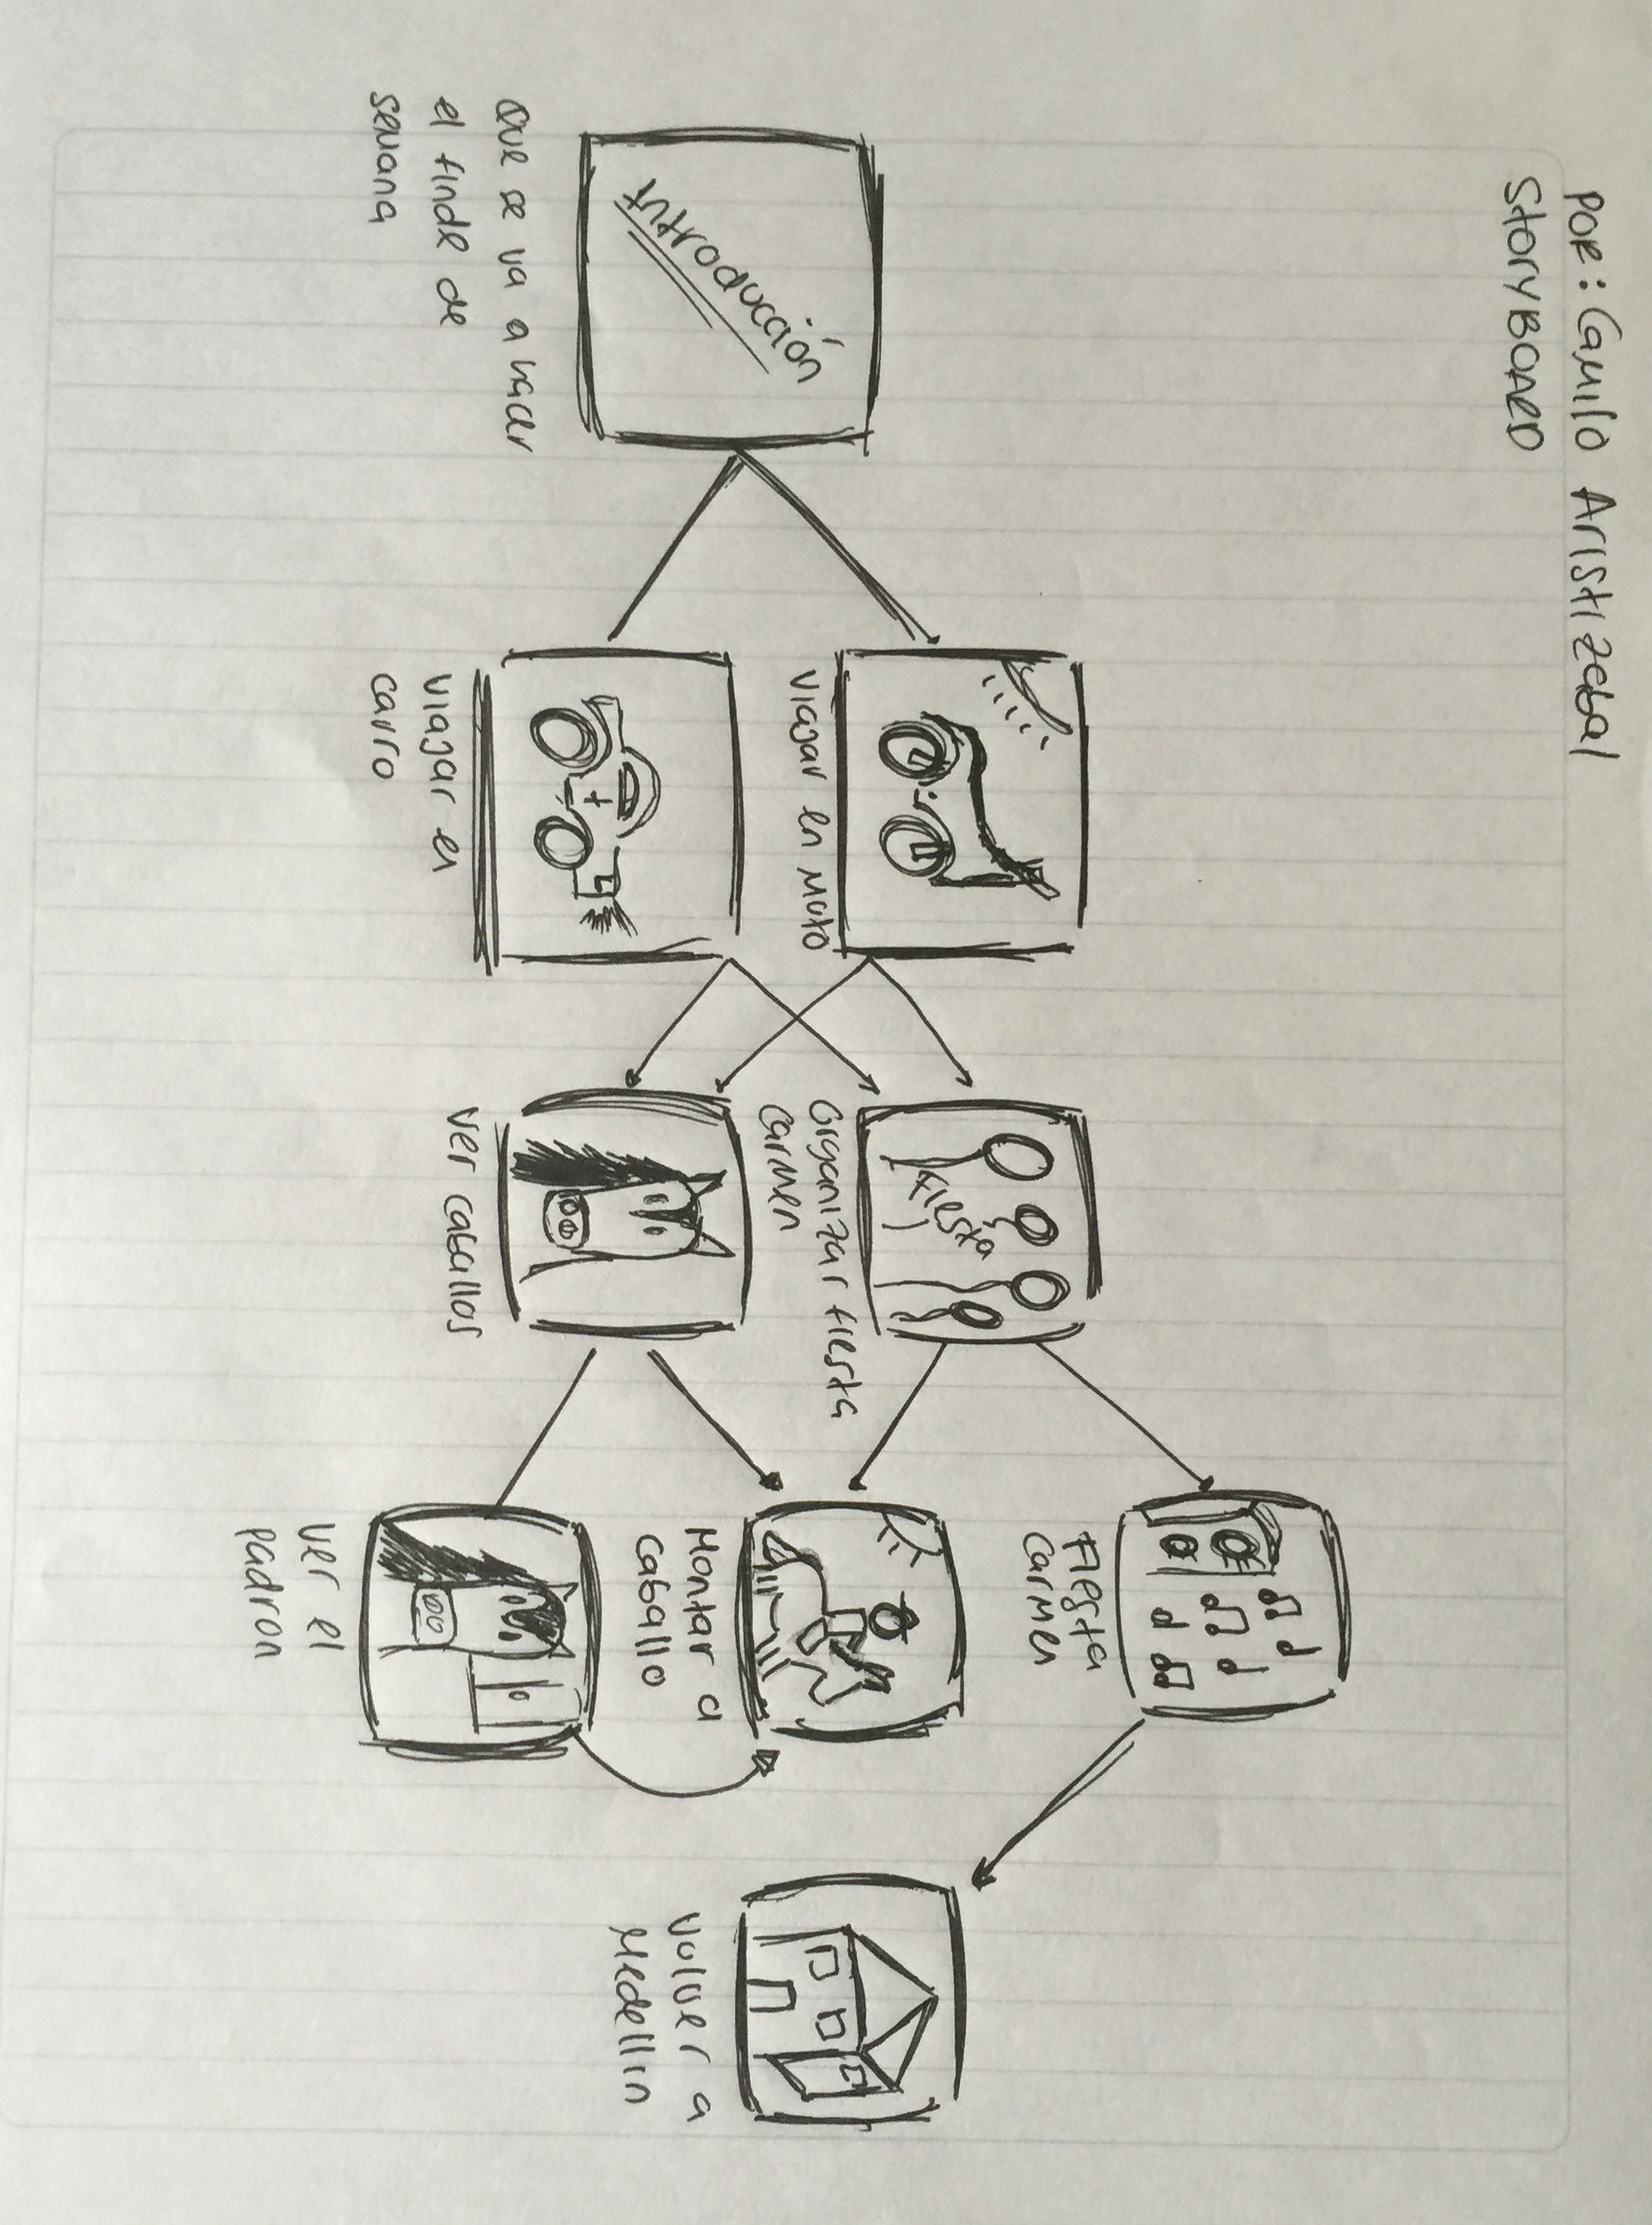 POR: Camilo Aristizabal
StoryBOARD
Introducción
que se va a hacer
el finde de
semana
viajar en moto
viajar en
carro
fiesta
Organizar fiesta
carmen
Ver caballos
Fiesta
carmen
Montar a
caballo
ver el
padron
Volver a
Medellin